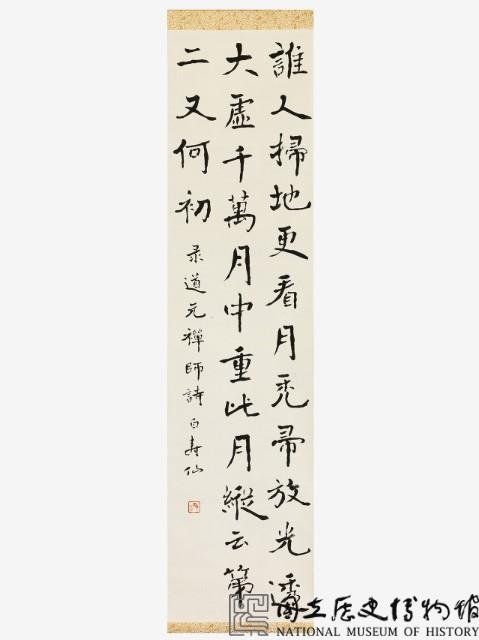 誰人掃地更看月禿帚放光透
大虛千萬月中重此月縱云第
二又何初
录道元禪師詩 白壽仙
國立歷史博物館
NATIONAL MUSEUM OF HISTORY